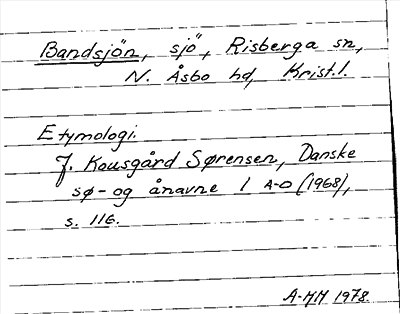 Bandsjön, sjö, Risberga sn,
N. Åsbo hd, Krist.l.
Etymologi.
J. Kousgård Sørensen, Danske
sø- og ånavne 1 A-D (1968),
s. 116.
A-MH 1978